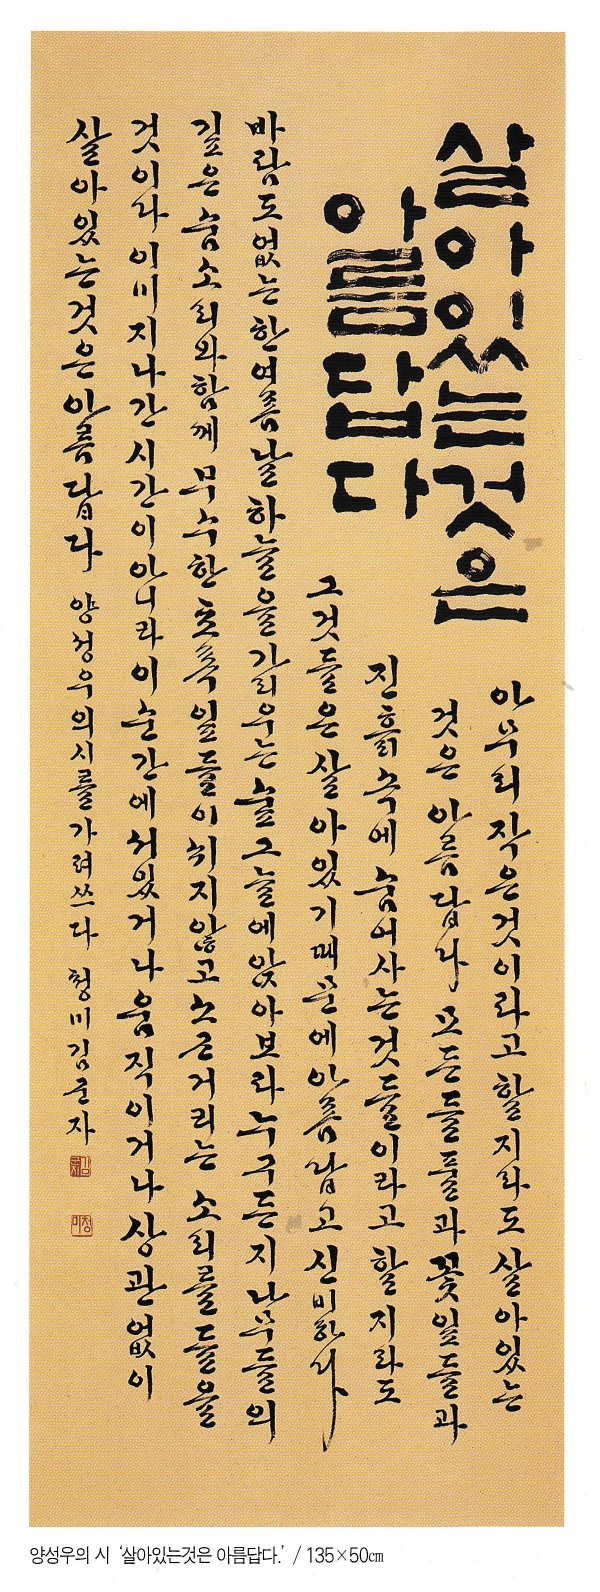 살아있는것은
아름답다
아무리작은것이라고할지라도살아있는
것은아름답다모든들풀과꽃잎들과
진흙속에숨어사는것들이라고할지라도
그것들은살아있기때문에아름답고신비하다
바람도없는한여름날하늘을가리우는숲그늘에앉아보라누구든지나무들의
깊은숨소리와함께무수한초록잎들이쉬지않고소근거리는소리를들을
것이다이미지나간시간이아니라이순간에서있거나움직이거나상관없이
살아있는것은아름답다 양성우의시를가려쓰다 청미김근자
청미
양성우의 시 ‘살아있는것은 아름답다.’ / 135×50㎝